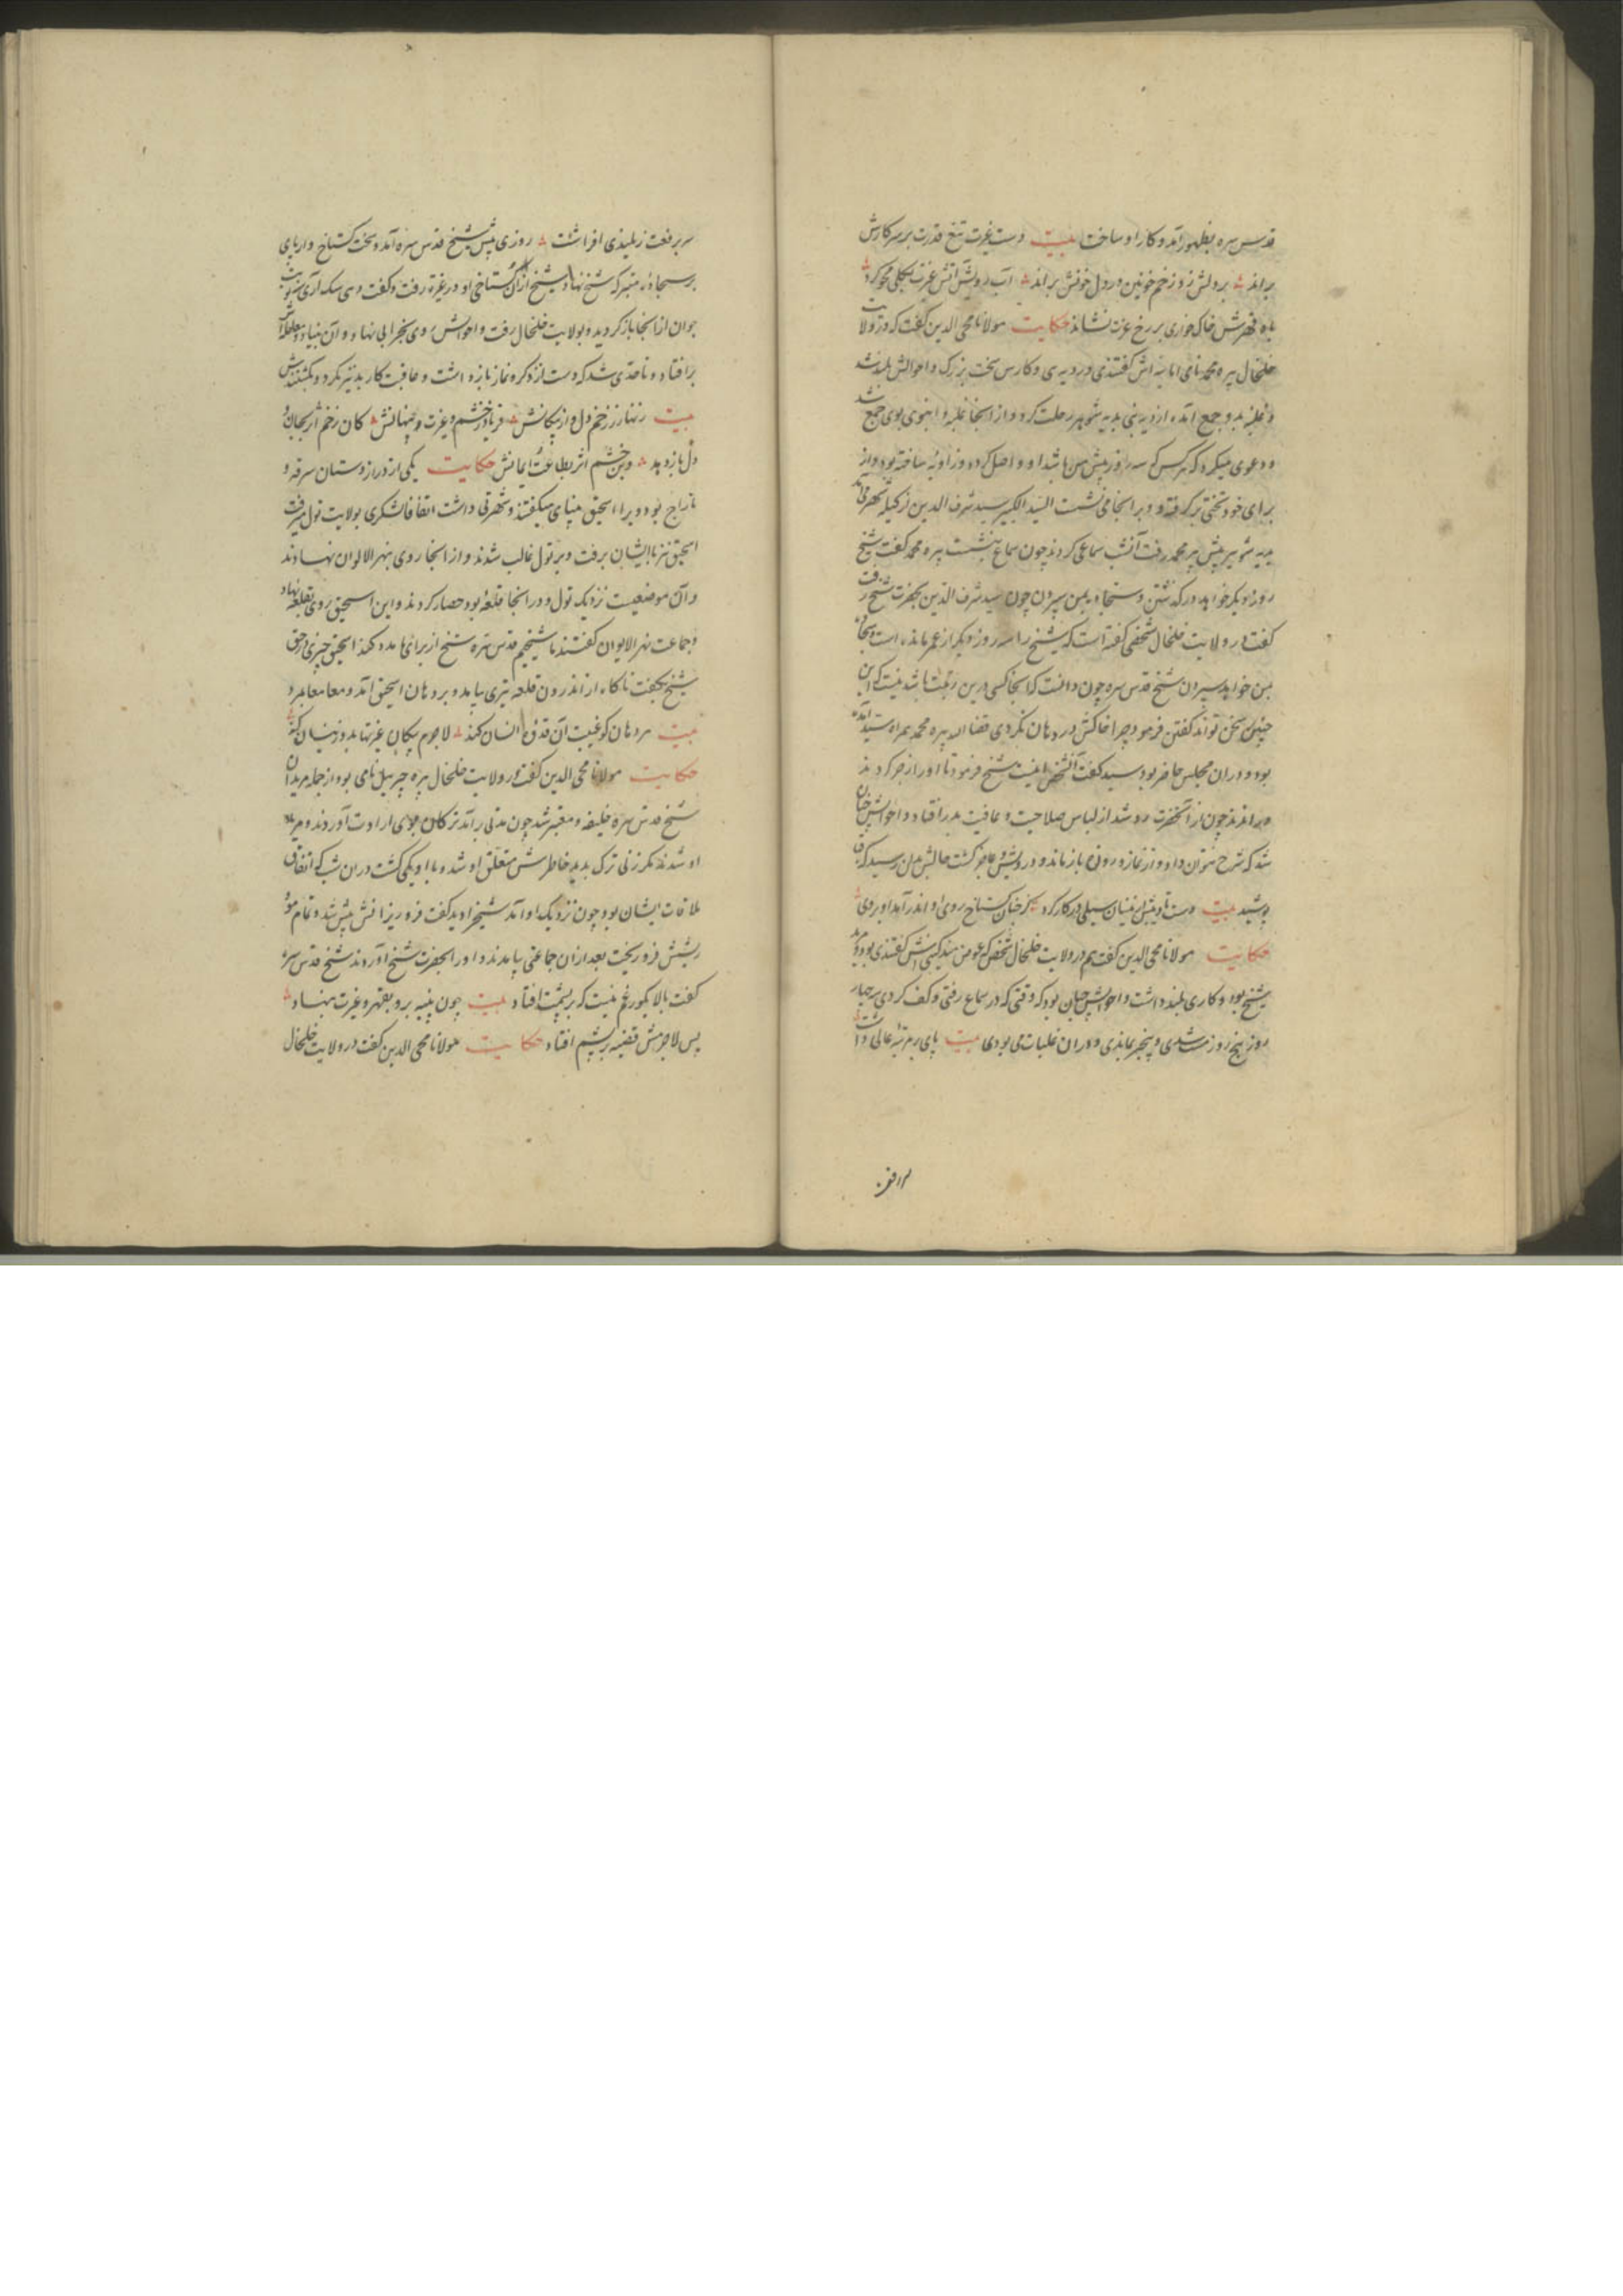 قدس سره بظهور آمد و کار او ساخت بیت دست غیرت تیغ قدرت بر سر کارش
براند بر دلش زو زخم خونین در دل خونش براند آب رویش آتش غیرت بکلی محو کرد
باد قهرش خاک خواری بر رخ عزت نشاند حکایت مولانا محی الدین گفت که در ولایت
خلخال پیره محمد نامی گفتندی در دیهی و کارش سخت بزرگ و احوالش بلند شد
و غلبه بدو جمع آمده از دیه بدیه شویر رحلت کرد و از آنجا غلبه و انبوهی بوی جمع شد
و دعوی میکرد که هر کس که سه روز پیش من باشد او را واصل کرد و زاویه ساخته بود و از
برای خود تختی کرفته و بر آنجا می نشست السید الکبیر سید شرف الدین
بدیه شویر پیش پیره محمد رفت آنشب سماعی کردند چون سماع بنشست پیره محمد گفت شیخ
روز دیکر خواهد درکذشتن و سجاده بمن سپردن چون سید شرف الدین بحضرت شیخ رفت
گفت در ولایت خلخال شخصی گفته است که شیخ را سه روز دیکر از عمر مانده است و سجاده
بمن خواهد سپردن شیخ قدس سره چون دانست که آنجا کسی درین رتبت نباشد نیست که این
چنین سخن تواند گفتن فرمود چرا خاکش در دهان نکردی قضا را پیره محمد همراه سید آمده
بود و در آن مجلس حاضر بود سید گفت آنشخص اینست شیخ فرمود تا او را زجر کردند
و براندند چون از آنحضرت رد شد از لباس صلاحیت و عافیت بدر افتاد و احوالش چنان
شد که شرح نتوان داد و از نماز و روزه باز ماند و درویش و عاجز گشت حالش بدان رسید که
پوشید بیت دست تادیبش اینسان سیلی در کار کرد کز چنان گستاخ روی او اندر آمد او بروی
حکایت مولانا محی الدین گفت هم در ولایت خلخال شخصی که گفتندی بود و مرید
شیخ بود و کاری بلند داشت و احوالش چنان بود که وقتی که در سماع رفتی و کف کردی چهار
روز پنج روز مست شدی و بیخبر بماندی و در آن غلبات می بودی بیت پای بر مرتبه عالی داشت
سر برفعت ز بلندی افراشت روزی پیش شیخ قدس سره آمد و سخت گستاخ وار پای
بر سجاده متبرکه شیخ نهاد شیخ از آن گستاخی او در غیرة رفت و گفت
جوان از آنجا باز گردید و بولایت خلخال رفت و احوالش روی بخرابی نهاد و آن بنیاد
بر افتاد و تا حدی شد که دست از ذکر و نماز باز داشت و عاقبت کار بد نیز بکرد و بکشتندش
بیت زنهار ز زخم دل و از پیکانش فریاد ز خشم و غیرت پنهانش کان زخم اثر بجان و
دل باز دهد وین خشم اثر بطاعت و ایمانش حکایت یکی از دراز دستان سرقه و
تاراج بود و برا اسحق مینای میکفتند و شهرتی داشت اتفاقا لشکری بولایت تول میرفت
اسحق نیز با ایشان برفت و بر تول غالب شدند و از آنجا روی بنهر الالوان نهادند
و آن موضعیست نزدیک تول و در آنجا قلعه بود حصار کردند و این اسحق روی بقلعه نهاد
و جماعت نهر الایوان گفتند ما شیخیم قدس سره شیخ از برای ما مدد کند اسحق چیزی در حق
شیخ بگفت ناکاه از اندرون قلعه تیری بیامد و بر دهان اسحق آمد و معا معا بمرد
بیت هر دهان کو غیبت آن قدوه انسان کند لاجرم پیکان غیرتها بدو زینسان کند
حکایت مولانا محی الدین گفت در ولایت خلخال پیره جبرییل نامی بود از جمله مریدان
شیخ قدس سره خلیفه و معتبر شد چون مدتی برآمد ترکان بوی ارادت آوردند و مرید
او شدند مکر زنی ترک بدید خاطرش متعلق او شد و با او یکی گشت در آن شب که اتفاق
ملاقات ایشان بود چون نزدیک او آمد شیخ را دید گفت فرو ریز آنش پیش شد و تمام موی
ریشش فرو ریخت بعد از آن جماعتی بیامدند و او را بحضرت شیخ آوردند شیخ قدس سره
گفت بالا غم نیست که بر پشت افتاد بیت چون پنبه برو بقهر و غیرت بنهاد
پس لاجرمش قضیه بر پشم افتاد حکایت مولانا محی الدین گفت در ولایت خلخال